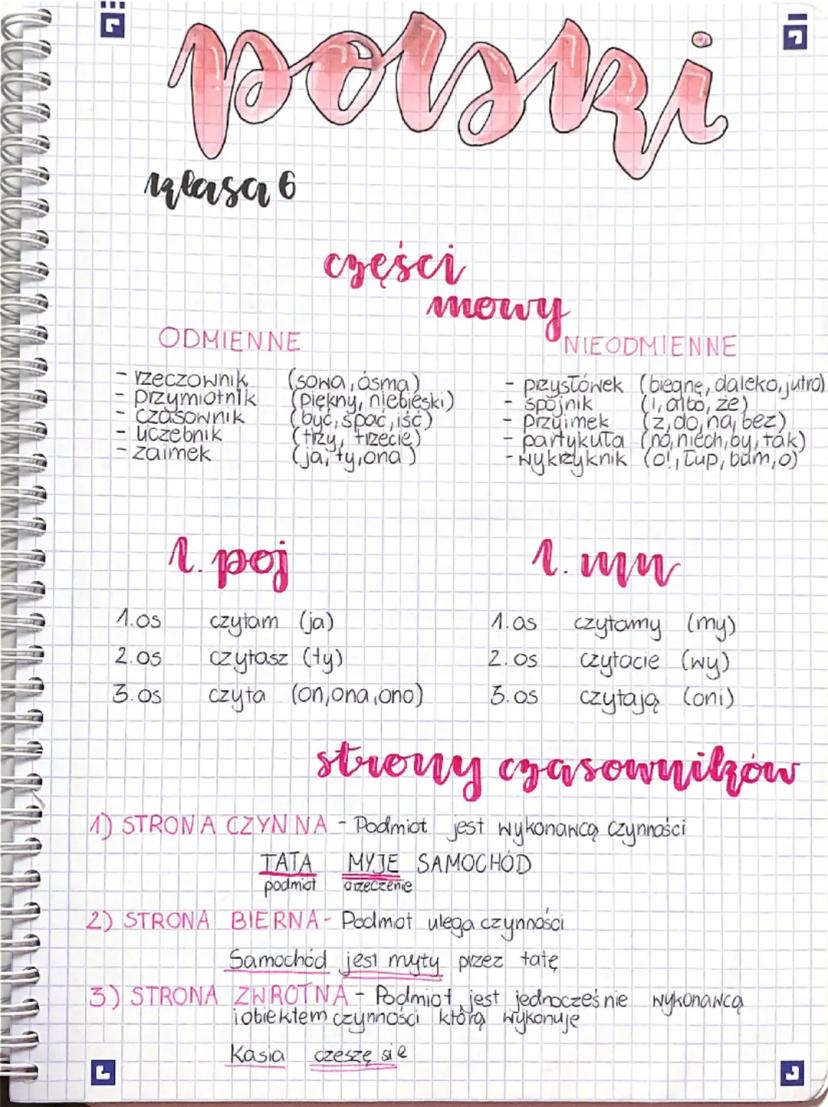 polski
klasa 6
części
mowy
ODMIENNE
- rzeczownik (sowa, ósma)
- przymiotnik (piękny, niebieski)
- czasownik (być, spać, iść)
- liczebnik (trzy, trzecie)
- zaimek (ja, ty, ona)
NIEODMIENNE
- przysłówek (biegnę, daleko, jutro)
- spójnik (i, albo, że)
- przyimek (z, do, na, bez)
- partykuła (no, niech, by, tak)
- wykrzyknik (o!, łup, bam, o)
l. poj
1.os czytam (ja)
2.os czytasz (ty)
3.os czyta (on, ona, ono)
l. mn
1.os czytamy (my)
2.os czytacie (wy)
3.os czytają (oni)
strony czasowników
1) STRONA CZYNNA - Podmiot jest wykonawcą czynności
TATA MYJE SAMOCHÓD
podmiot orzeczenie
2) STRONA BIERNA - Podmiot ulega czynności
Samochód jest myty przez tatę
3) STRONA ZWROTNA - Podmiot jest jednocześnie wykonawcą
i obiektem czynności którą wykonuje
Kasia czeszę się